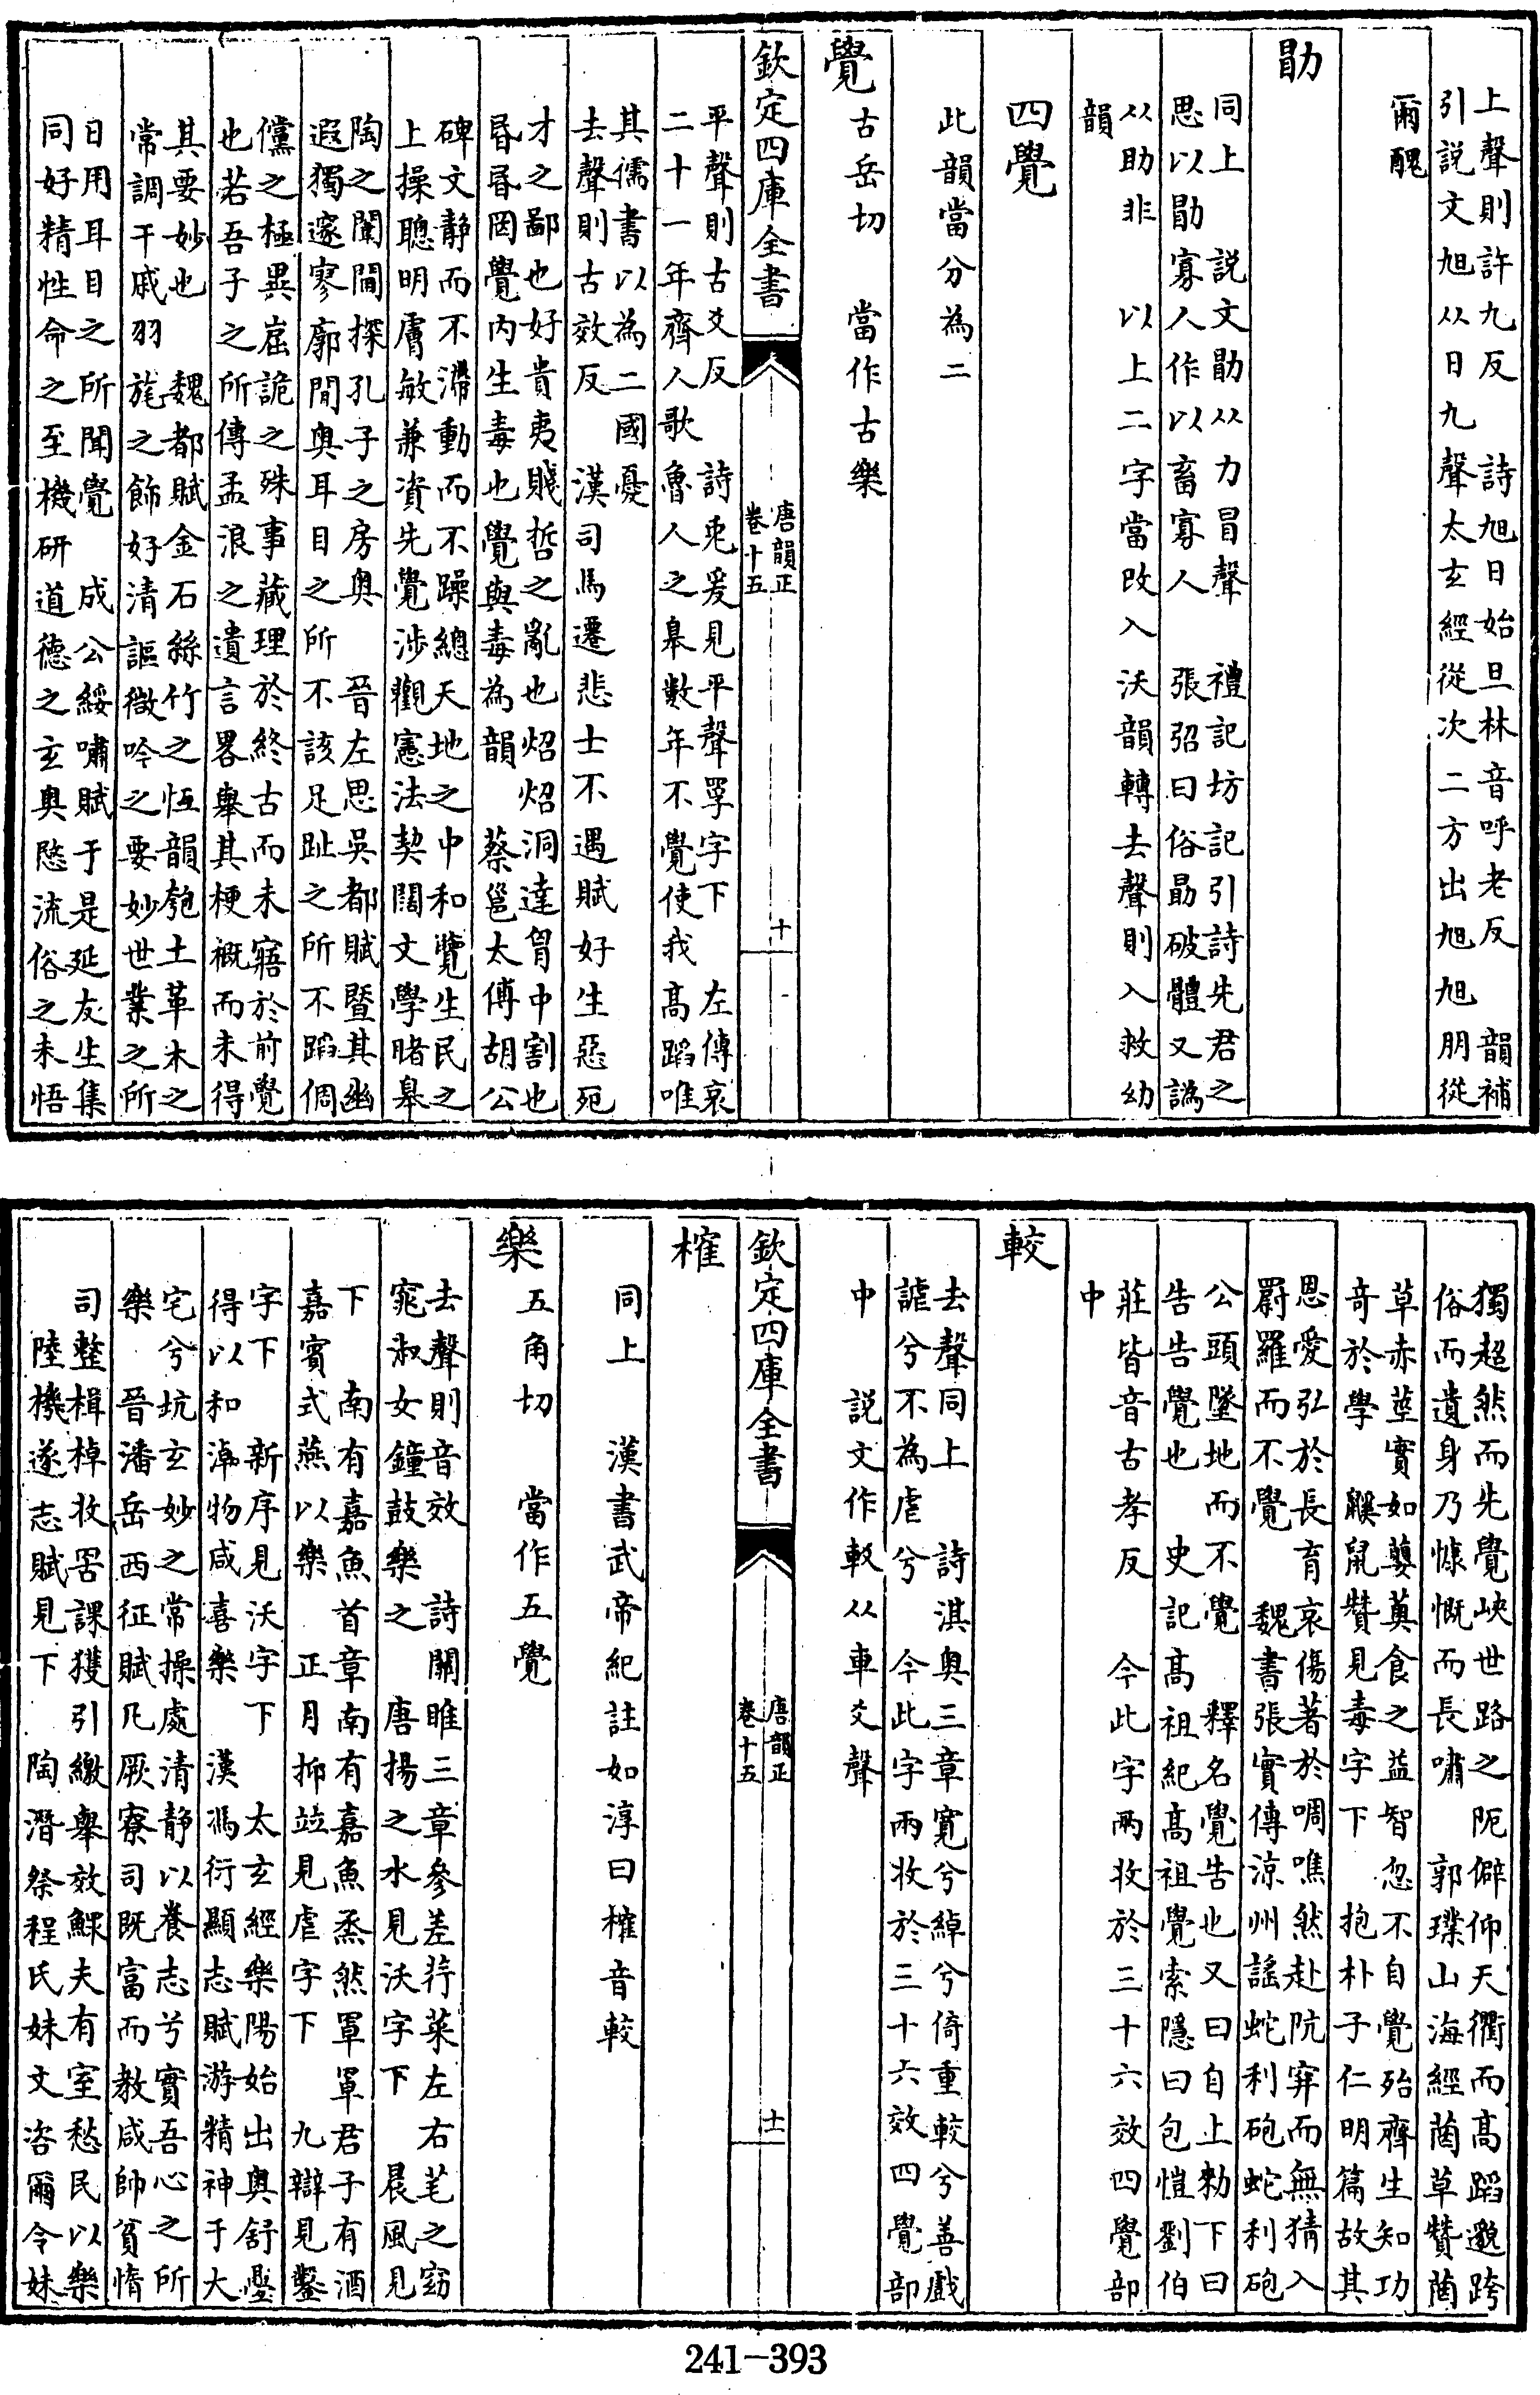 上聲則許九反　詩旭日始旦林音呼老反　韻補
引説文旭从日九聲太玄經從次二方出旭旭朋從
爾醜
勖
同上　説文勖从力冒聲　禮記坊記引詩先君之
思以勖寡人作以畜寡人　張弨曰俗勗破體又譌
从助非　以上二字當改入沃韻轉去聲則入救幼
韻
四覺
此韻當分為二
覺古岳切　當作古樂
欽定四庫全書
唐韻正
卷十五
十
平聲則古爻反　詩兎爰見平聲罦字下　左傳哀
二十一年齊人歌　魯人之臯數年不覺使我髙蹈唯
其儒書以為二國憂
去聲則古效反　漢司馬遷悲士不遇賦好生惡死
才之鄙也好貴夷賤哲之亂也炤炤洞達胷中割也
昬昬罔覺内生毒也覺與毒為韻　蔡邕太傅胡公
碑文靜而不滯動而不躁總天地之中和覽生民之
上操聰明膚敏兼資先覺涉觀憲法契闊文學睹臯
陶之閫閾探孔子之房奥　晉左思吳都賦暨其幽
遐獨邃寥廓閒奥耳目之所不該足趾之所不蹈倜
儻之極異崫詭之殊事藏理於終古而未寤於前覺
也若吾子之所傳孟浪之遺言畧舉其梗概而未得
其要妙也　魏都賦金石絲竹之恆韻匏土革木之
常調干戚羽旄之飾好清謳微吟之要妙世業之所
日用耳目之所聞覺　成公綏嘯賦于是延友生集
同好精性命之至機研道德之玄奥愍流俗之未悟
獨超然而先覺峽世路之阨僻仰天衢而髙蹈邈跨
俗而遺身乃慷慨而長嘯　郭璞山海經䔄草贊䔄
草赤莖實如蘡薁食之益智忽不自覺殆齊生知功
奇於學　鼷鼠贊見毒字下　抱朴子仁明篇故其
恩愛弘於長育哀傷著於啁噍然赴阬穽而無猜入
罻羅而不覺　魏書張實傳涼州謡蛇利砲蛇利砲
公頭墜地而不覺　釋名覺告也又曰自上勅下曰
告告覺也　史記髙祖紀髙祖覺索隱曰包愷劉伯
莊皆音古孝反　今此字兩收於三十六效四覺部
中
較
去聲同上　詩淇奥三章寛兮綽兮倚重較兮善戲
謔兮不為虐兮　今此字兩收於三十六效四覺部
中　説文作較从車爻聲
欽定四庫全書
唐韻正
卷十五
十一
榷
同上　漢書武帝紀註如淳曰榷音較
樂五角切　當作五覺
去聲則音效　詩關雎三章參差荇菜左右芼之窈
窕淑女鐘鼓樂之　唐揚之水見沃字下　晨風見
下　南有嘉魚首章南有嘉魚烝然罩罩君子有酒
嘉賓式燕以樂　正月抑竝見虐字下　九辯見鑿
字下　新序見沃字下　太玄經樂陽始出奥舒疊
得以和淖物咸喜樂　漢馮衍顯志賦游精神于大
宅兮坑玄妙之常操處清靜以養志兮實吾心之所
樂　晉潘岳西征賦凡厥寮司既富而教咸帥貧惰
司整楫棹收罟課獲引繳舉效鰥夫有室愁民以樂
陸機遂志賦見下　陶潛祭程氏妹文咨爾令妹
241-393